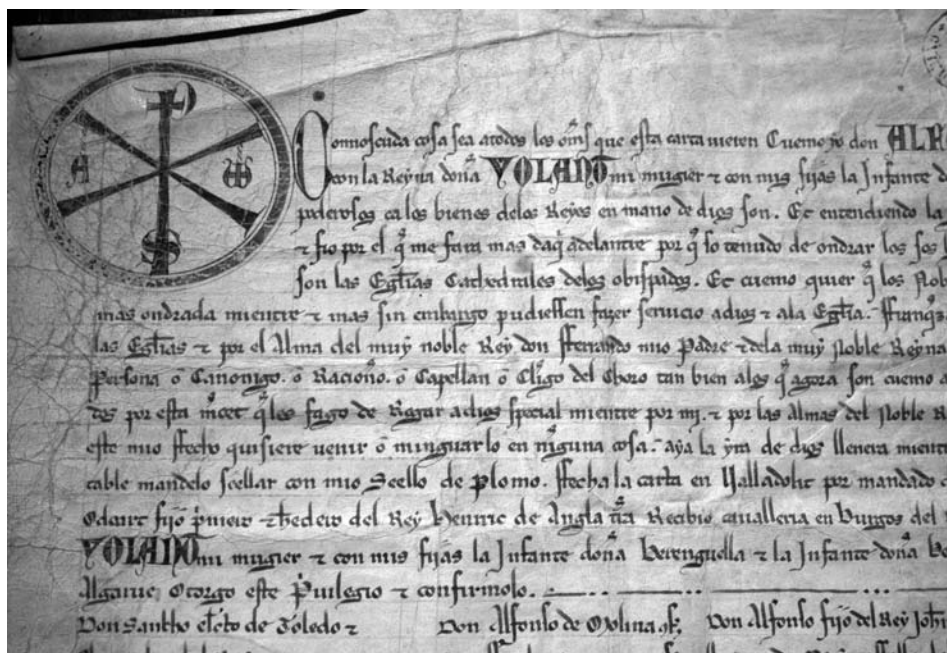 Connosçuda cosa sea atodos los om̃s que esta carta uieren Cuemo yo don ALF
con la Reyna doña YOLANT mi mugier ⁊ con mis fijas la Infante
poderosos ca los bienes delos Reyes en mano de dios son. Et entendiendo la
⁊ fio por el q̃ me fara mas daq̃ adelantre por q̃ so tenudo de ondrar los sos
son las Eglẽias Cathedrales delos obispados. Et cuemo quier q̃ los Nob
mas ondrada mientre ⁊ mas sin embargo pudiessen fazer seruicio adios ⁊ ala Eglẽia. ffranq̃s
las Eglẽias ⁊ por el Alma del muy noble Rey don fferrando mio Padre ⁊ dela muy Noble Reyna
Persona o Canonigo. o Racioñо. o Capellan o Cl̃igo del Choro tan bien alos q̃ agora son cuemo a
dos por esta m̃cet q̃ les fago de Rogar adios special mientre por mi. ⁊ por las Almas del Noble R
este mio ffecho quisiere uenir o minguarlo en nĩguna cosa. aya la yra de dios llenera mientr
cable mandelo seellar con mio Seello de plomo. ffecha la carta en Valladolit por mandado
Odoart fijo p̃mero ⁊ hedero del Rey Henric de Angla tr̃a Recibio caualleria en Burgos del
YOLANT mi mugier ⁊ con mis fijas la Infante doña Berenguella ⁊ la Infante doña Be
Algarue Otorgo este Priuilegio ⁊ confirmolo.
Don Sancho el̃cto de Toledo ⁊ Don Alfonso de Molina .ɔf. Don Alfonso fijo del Rey Joh̃
A ω